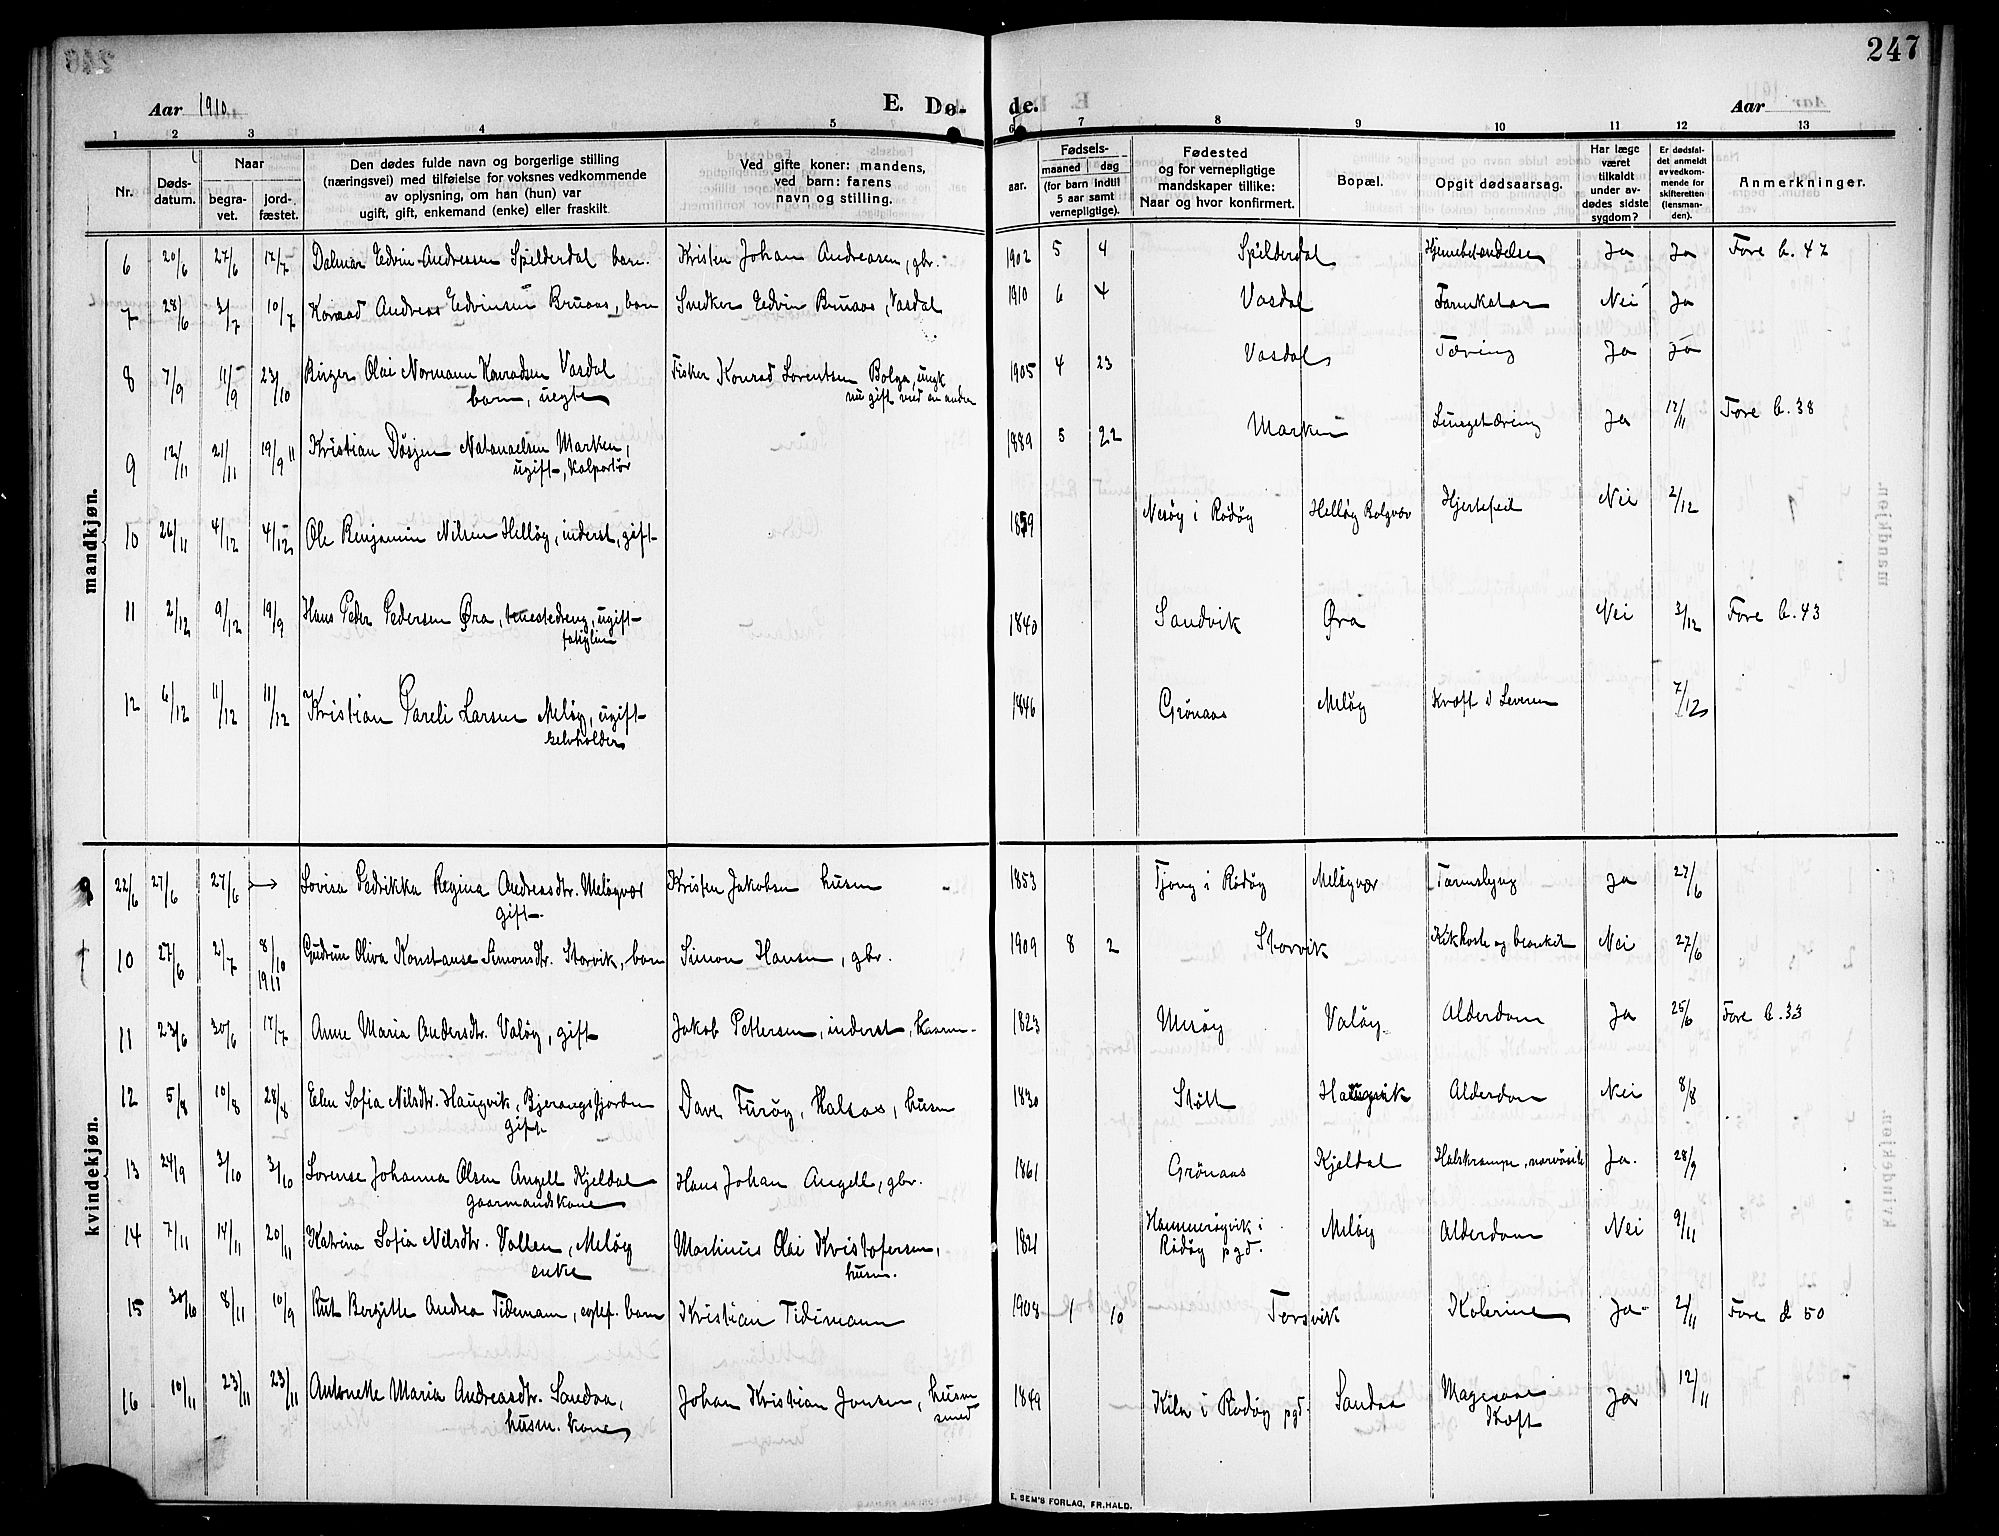 247
Aar 1910.
E. Dø-
de.
Aar
1 2 3 4 5 6 7 8 9 10 11 12 13
Nr.
Døds-
datum.
Naar
begra-
vet.
jord-
fæstet.
Den dødes fulde navn og borgerlige stilling
(næringsvei) med tilføielse for voksnes vedkommende
av oplysning, om han (hun) var
ugift, gift, enkemand (enke) eller fraskilt.
Ved gifte koner: mandens,
ved barn: farens
navn og stilling.
Fødsels-
aar. maaned dag
(for barn indtil
5 aar samt
vernepligtige).
Fødested
og for vernepligtige
mandskaper tillike:
Naar og hvor konfirmert.
Bopæl.
Opgit dødsaarsag.
Har læge
været
tilkaldt
under av-
dødes sidste
sygdom?
Er dødsfal-
det anmeldt
av vedkom-
mende for
skifteretten
(lensman-
den).
Anmerkninger.
mandkjøn.
6 20/6 27/6 17/7 Dalmar Edvin Andreasen Spilderdal barn. Kristen Johan Andreasen, gbr. 1902 5 4 Spilderdal Hjernebetændelse Ja Ja Fore b. 42
7 28/6 3/7 10/7 Konrad Andreas Edvinsen Bruaas, barn Snedker Edvin Bruaas, Vasdal 1910 6 4 Vasdal Tarmkatar Nei Ja
8 7/9 11/9 23/10 Birger Olai Normann Konradsen Vasdal Fisker Konrad Lorentsen Bolga, ungk 1905 4 23 Vasdal Tæring Ja Ja
barn, uegte nu gift med en anden
9 12/11 21/11 19/9 11 Kristian Døsjen Natanaelsen Marken, 1889 5 22 Marken Lungetæring Ja 12/11 Fore b. 38
ugift, Kolportør
10 26/11 4/12 4/12 Ole Benjamin Nilsen Helløy, inderst, gift 1859 Nesøy i Rødøy Helløy Bolgvær Hjertefeil Nei 2/12
11 2/12 9/12 19/9 Hans Peder Pedersen Øra, tenestedreng, ugift 1840 Sandvik Øra Nei 3/12 Fore b. 43
fattiglem
12 6/12 11/12 11/12 Kristian Pareli Larsen Meløy, ugift 1846 Grønaas Meløy Kræft i Leveren 7/12
selvholder
kvindekjøn.
9 22/6 27/6 27/6 Lovisa Fedrikka Regina Andreasdtr. Meløyvær Kristen Jakobsen husm 1853 Tjong i Rødøy Meløyvær Tarmslyng Ja 27/6
gift
10 27/6 2/7 8/10 1911 Gudrun Oliva Konstanse Simonsdtr. Storvik, barn Simon Hansen, gbr. 1909 8 2 Storvik Kikhoste og bronkit Nei 27/6
11 23/6 30/6 17/7 Anne Maria Andersdtr. Valøy, gift Jakob Pettersen, inderst, 1823 Mesøy Valøy Alderdom Ja 25/6 Fore b. 33
12 5/8 10/8 28/8 Elen Sofia Nilsdtr. Haugvik, Bjerangsfjorden Dave Furøy, Halsos, husm 1830 Støtt Haugvik Alderdom Nei 8/8
gift
13 24/9 3/10 3/10 Lorense Johanna Olsen Angell Kjeldal Hans Johan Angell, gbr. 1861 Grønaas Kjeldal Halskrampe, nervøsite Ja. 28/9
gaarmandskone
14 7/11 14/11 20/11 Katrina Sofia Nilsdtr. Vallen, Meløy Martinus Olai Kristofersen, 1821 Hammerøyvik i Meløy Alderdom Nei 9/11
enke husm. Rødøy pgd.
15 30/10 8/11 10/9 Rut Bergitte Andrea Tidemann, egtef. barn Kristian Tidemann 1908 1 10 Torsvik Kolerine Ja 2/11 Fore d 50
16 10/11 23/11 23/11 Antonette Maria Andreasdtr. Sandaa, Johan Kristian Jonsen, husm 1849 Kila i Rødøy pgd. Sandaa Mavesaar Ja 12/11
husm. kone smed Kræft
E. SEM'S FORLAG, FR.HALD.